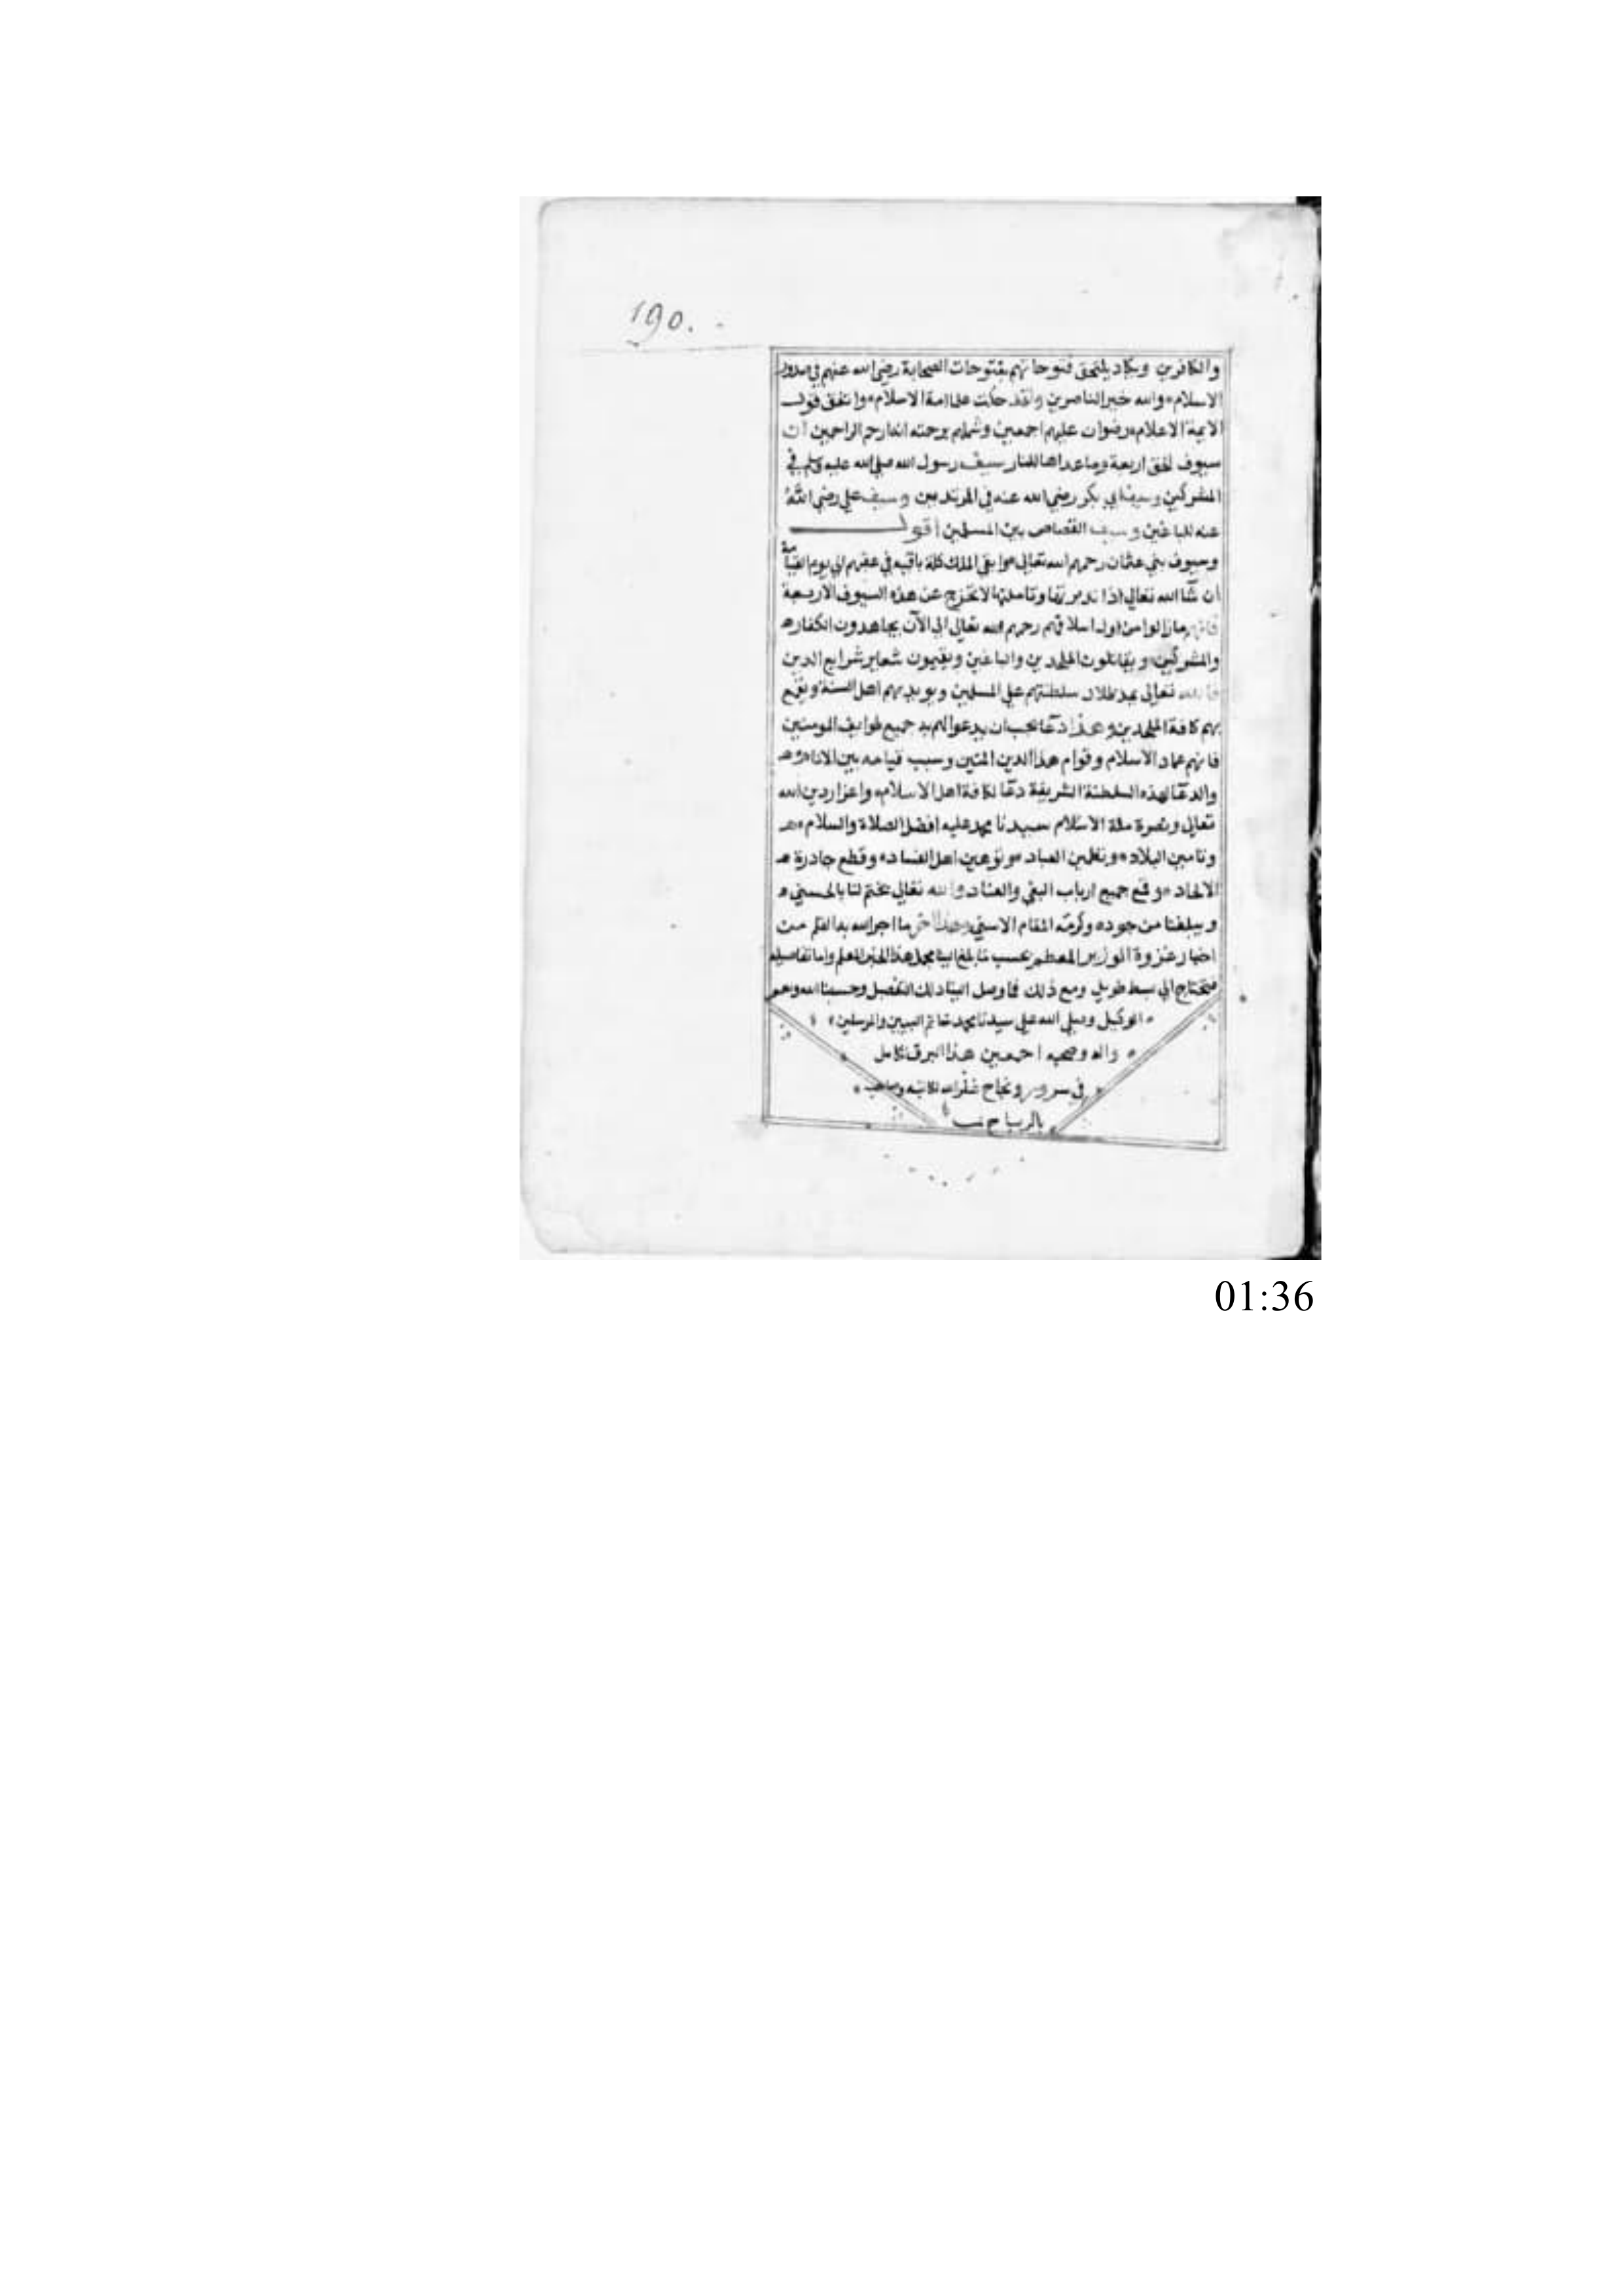 190.
والكافرين ويكاد يلتحق فتوحاتهم بفتوحات الصحابة رضي الله عنهم في صدور
الاسلام والله خير الناصرين ولقد حكت علما امة الاسلام واتفق قول
الايمة الاعلام رضوان عليهم اجمعين وشملهم برحمته انه ارحم الراحمين ان
سيوف الحق اربعة وما عداها للنار سيف رسول الله صلى الله عليه وسلم في
المشركين وسيف ابي بكر رضي الله عنه في المرتدين وسيف علي رضي اللهُ
عنه للباغين وسيف القصاص بين المسلمين اقول
وسيوف بني عثمان رحمهم الله تعالى وابقى الملك كلمة باقيه في عقبهم الي يوم القيامة
ان شآ الله تعالي اذا تدبرتها وتاملتها لا تخرج عن هذه السيوف الاربعة
فانهم مازالوا من اول اسلافهم رحمهم الله تعالي الي الآن يجاهدون الكفار
والمشركين ويقاتلون الملحدين والباغين ويقيمون شعاير شرايع الدين
فالله تعالى يمد ظلال سلطنتهم علي المسلمين ويويد بهم اهل السنة ويقمع
بهم كافة الملحدين وهذا دعآ يجب ان يدعوا لهم به جميع طوايف المومنين
فانهم عماد الاسلام وقوام هذا الدين المتين وسبب قيامه بين الانام
والدعآ لهذه السلطنة الشريفة دعآ لكافة اهل الاسلام واعزاز دين الله
تعالي ونصرة ملة الاسلام سيدنا محمد عليه افضل الصلاة والسلام
وتامين البلاد وتطمين العباد وتوهين اهل الفساد وقطع جادرة
الالحاد وقمع جميع ارباب البغي والعناد والله تعالي يختم لنا بالحسني
ويبلغنا من جوده وكرمه المقام الاسني وهذا آخر ما اجرا الله به القلم من
اخبار غزوة الوزير المعظم بحسب ما بلغ الينا مجمل هذا الخبر المعلم واما تفاصيله
فتحتاج الي بسط طويل ومع ذلك فما وصل الينا ذلك التفصيل وحسبنا الله وهو
الوكيل وصلي الله علي سيدنا محمد خاتم النبيين والمرسلين
واله وصحبه اجمعين هذا البرق تكامل
في سرور ونجاح غفر الله لكاتبه وصاحبه
01:36